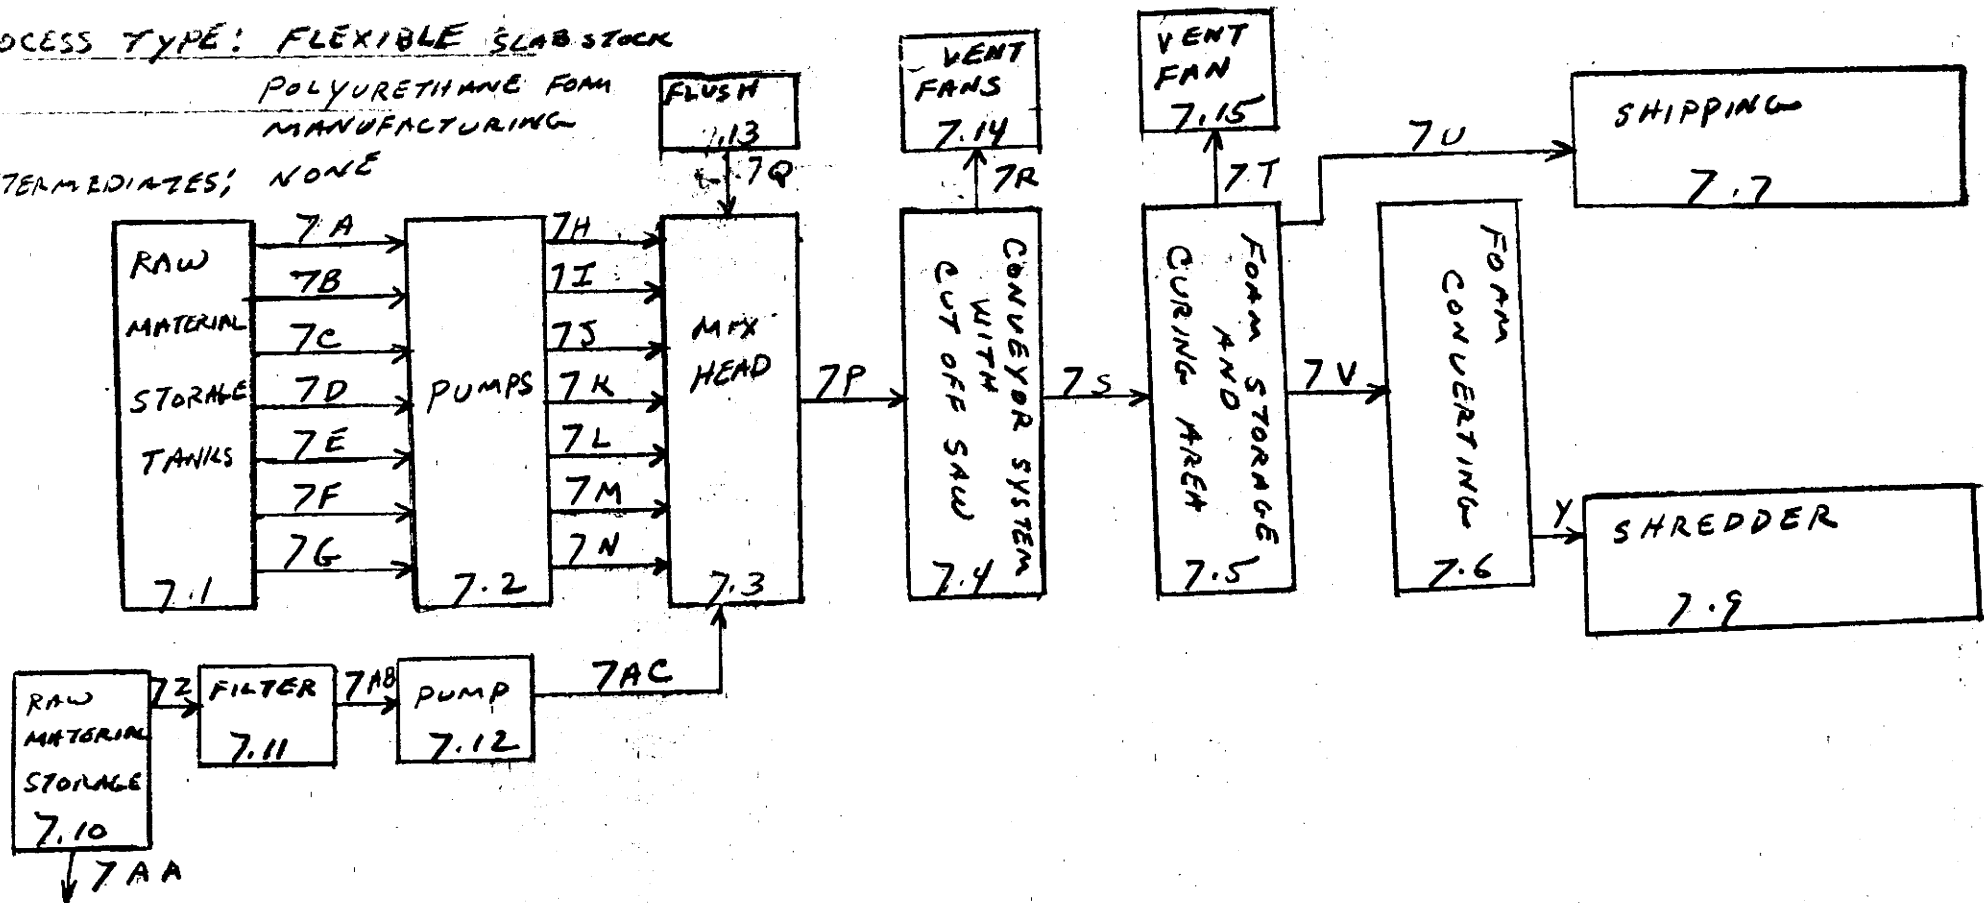 OCESS TYPE: FLEXIBLE SLABSTOCK
POLYURETHANE FOAM
MANUFACTURING
TERMEDIATES; NONE
FLUSH
7.13
7Q
VENT
FANS
7.14
7R
VENT
FAN
7.15
7T
7U
SHIPPING
7.7
RAW
MATERIAL
STORAGE
TANKS
7.1
7A
7B
7C
7D
7E
7F
7G
PUMPS
7.2
7H
7I
7J
7K
7L
7M
7N
MIX
HEAD
7.3
7P
CONVEYOR SYSTEM
WITH
CUT OFF SAW
7.4
7S
FOAM STORAGE
AND
CURING AREA
7.5
7V
FOAM
CONVERTING
7.6
Y
SHREDDER
7.9
RAW
MATERIAL
STORAGE
7.10
7AA
7Z
FILTER
7.11
7AB
PUMP
7.12
7AC